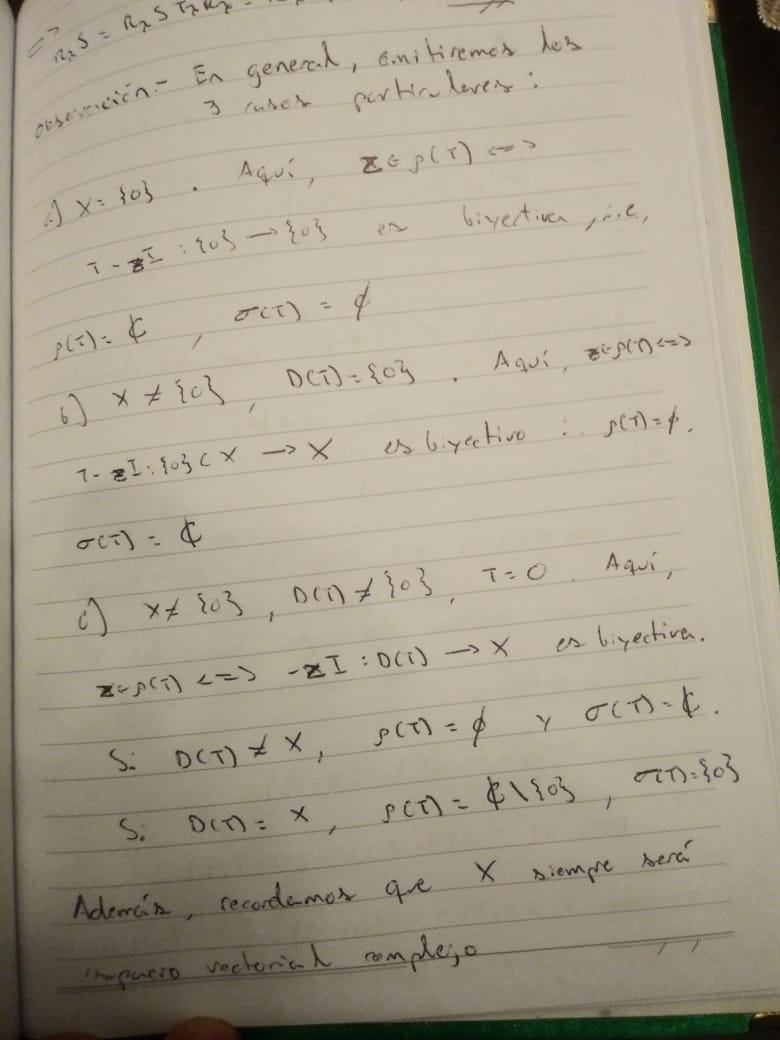 => R_z S = R_z S T_z R_z =
observación.- En general, omitiremos los
3 casos particulares:
a) X = {0}. Aquí, z ∈ ρ(T) <=>
T - zI : {0} → {0} es biyectiva, i.e,
ρ(T) = ₵, σ(T) = ∅
b) X ≠ {0}, D(T) = {0}. Aquí, z ∈ ρ(T) <=>
T - zI : {0} ⊂ X → X es biyectivo ∴ ρ(T) = ∅.
σ(T) = ₵
c) X ≠ {0}, D(T) ≠ {0}, T = 0. Aquí,
z ∈ ρ(T) <=> -zI : D(T) → X es biyectiva.
Si D(T) ≠ X, ρ(T) = ∅ y σ(T) = ₵.
Si D(T) = X, ρ(T) = ₵ \ {0}, σ(T) = {0}
Además, recordamos que X siempre será
espacio vectorial complejo